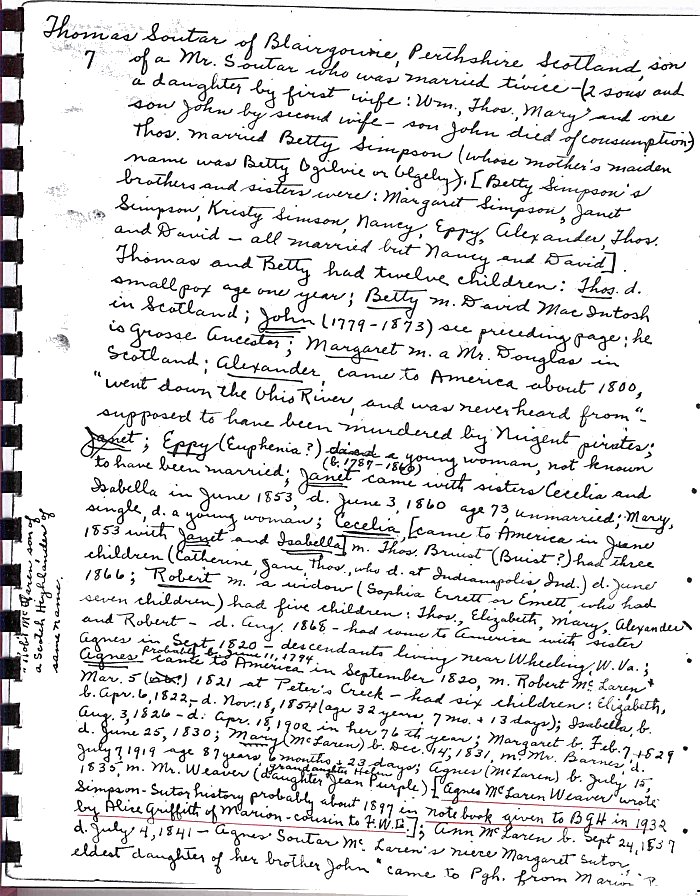 Thomas Soutar of Blairgowrie, Perthshire Scotland, son
7 of a Mr. Soutar who was married twice - (2 sons and
a daughter by first wife: Wm., Thos., Mary and one
son John by second wife - son John died of consumption)
Thos. married Betty Simpson (whose mother's maiden
name was Betty Ogilvie or Ogleby). [Betty Simpson's
brothers and sisters were: Margaret Simpson, Janet
Simpson, Kristy Simson, Nancy, Eppy, Alexander, Thos.
and David - all married but Nancy and David].
Thomas and Betty had twelve children: Thos. d.
smallpox age one year; Betty m. David MacIntosh
in Scotland; John (1779-1873) see preceding page; he
is Grosse Ancestor; Margaret m. a Mr. Douglas in
Scotland; Alexander, came to America about 1800,
"went down the Ohio River, and was never heard from" -
supposed to have been murdered by Nugent pirates;
Janet; Eppy (Euphenia?) died a young woman, not known
to have been married; Janet (b. 1787-1860) came with sisters Cecelia and
Isabella in June 1853, d. June 3, 1860 age 73, unmarried; Mary,
single, d. a young woman; Cecelia, [came to America in June
1853 with Janet and Isabella] m. Thos. Bruist (Buist?) had three
children (Catherine, Jane, Thos., who d. at Indianapolis, Ind.) d. June
1866; Robert m. a widow (Sophia Errett or Emett, who had
seven children) had five children: Thos., Elizabeth, Mary, Alexander
and Robert - d. Aug. 1868 - had come to America with sister
Agnes in Sept. 1820 - descendants living near Wheeling, W. Va.;
Agnes probably b. June 11, 1794 came to America in September 1820, m. Robert McLaren
Mar. 5 1821 at Peter's Creek - had six children: Elizabeth,
b. Apr. 6, 1822, - d. Nov. 18, 1854 (age 32 years, 7 mo. + 13 days); Isabella, b.
Aug. 3, 1826 - d. Apr. 18, 1902 in her 76th year; Margaret b. Feb. 7, 1829
d. June 25, 1830; Mary (McLaren) b. Dec. 14, 1831, m. Mr. Barnes, d.
July 7, 1919 age 87 years, 6 months + 23 days; Agnes (McLaren) b. July 15,
1835, m. Mr. Weaver (daughter Jean Purple). [Agnes McLaren Weaver wrote
Simpson-Sutor history probably about 1897 in notebook given to BGH in 1932
by Alice Griffith of Marion - cousin to F.W.G.]; Ann McLaren b. Sept 24, 1837
d. July 4, 1841 - Agnes Soutar McLaren's niece Margaret Sutor,
eldest daughter of her brother John "came to Pgh. from Marion
son of
a Scotch Highlander of
same name.